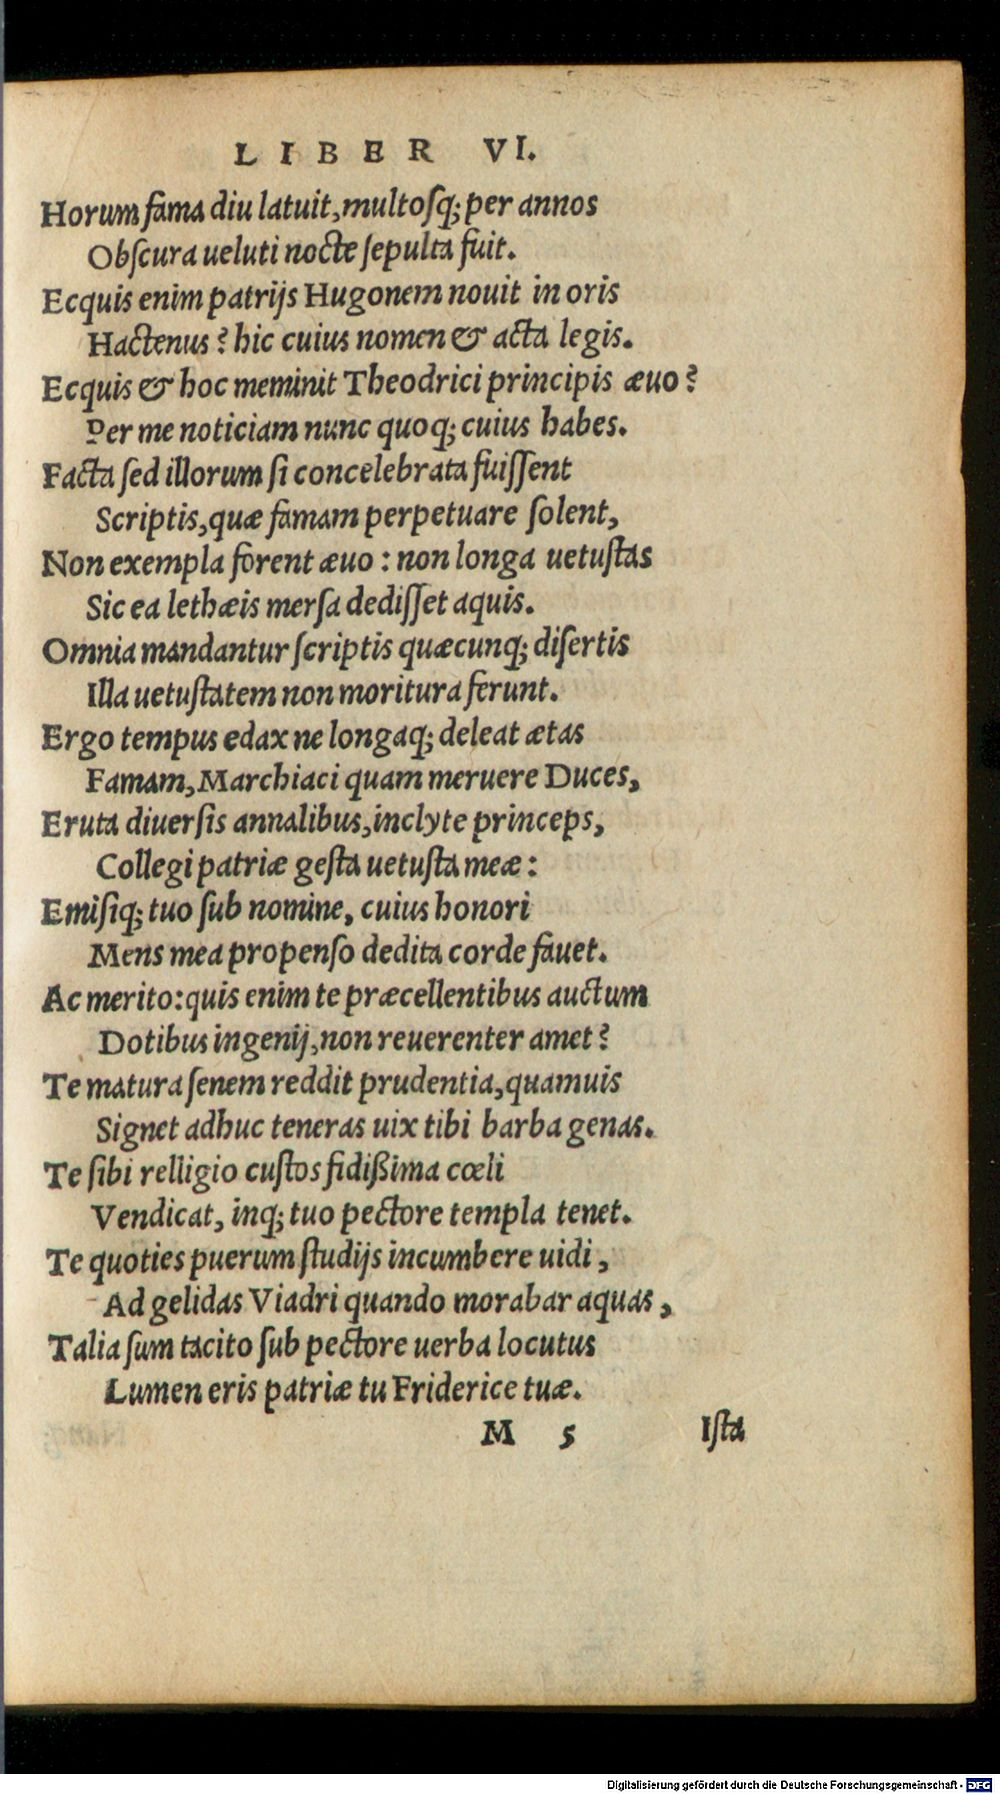 LIBER VI.
Horum fama diu latuit, multosq; per annos
Obscura ueluti nocte sepulta fuit.
Ecquis enim patrijs Hugonem nouit in oris
Hactenus? hic cuius nomen & acta legis.
Ecquis & hoc meminit Theodrici principis æuo?
Per me noticiam nunc quoq; cuius habes.
Facta sed illorum si concelebrata fuissent
Scriptis, quæ famam perpetuare solent,
Non exempla forent æuo: non longa uetustas
Sic ea lethæis mersa dedisset aquis.
Omnia mandantur scriptis quæcunq; disertis
Illa uetustatem non moritura ferunt.
Ergo tempus edax ne longaq; deleat ætas
Famam, Marchiaci quam meruere Duces,
Eruta diuersis annalibus, inclyte princeps,
Collegi patriæ gesta uetusta meæ:
Emisiq; tuo sub nomine, cuius honori
Mens mea propenso dedita corde fauet.
Ac merito: quis enim te præcellentibus auctum
Dotibus ingenij, non reuerenter amet?
Te matura senem reddit prudentia, quamuis
Signet adhuc teneras uix tibi barba genas.
Te sibi relligio custos fidißima cœli
Vendicat, inq; tuo pectore templa tenet.
Te quoties puerum studijs incumbere uidi,
Ad gelidas Viadri quando morabar aquas,
Talia sum tacito sub pectore uerba locutus
Lumen eris patriæ tu Friderice tuæ.
M 5 Ista
Digitalisierung gefördert durch die Deutsche Forschungsgemeinschaft - DFG